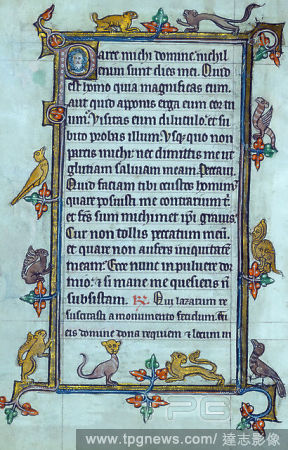 Parce michi domine nichil
enim sunt dies mei. Quid
est homo quia magnificas eum
aut quid apponis erga eum cor tu
um. Visitas eum diluculo. et su
bito probas illum. Usq; quo non
parcis michi: nec dimittis me ut
glutiam salivam meam. Peccavi.
Quid faciam tibi custos hominu
quare posuisti me contrarium t
et fcs sum michimet ipi gravis.
Cur non tollis peccatum meu.
et quare non aufers iniquitate
meam. Ecce nunc in pulvere dor
mio. & si mane me quesieris n
subsistam. Qui lazarum re
suscitasti a monumento fetidum. tu
eis domine dona requiem & locum in
PG
www.tpgnews.com / 達志影像